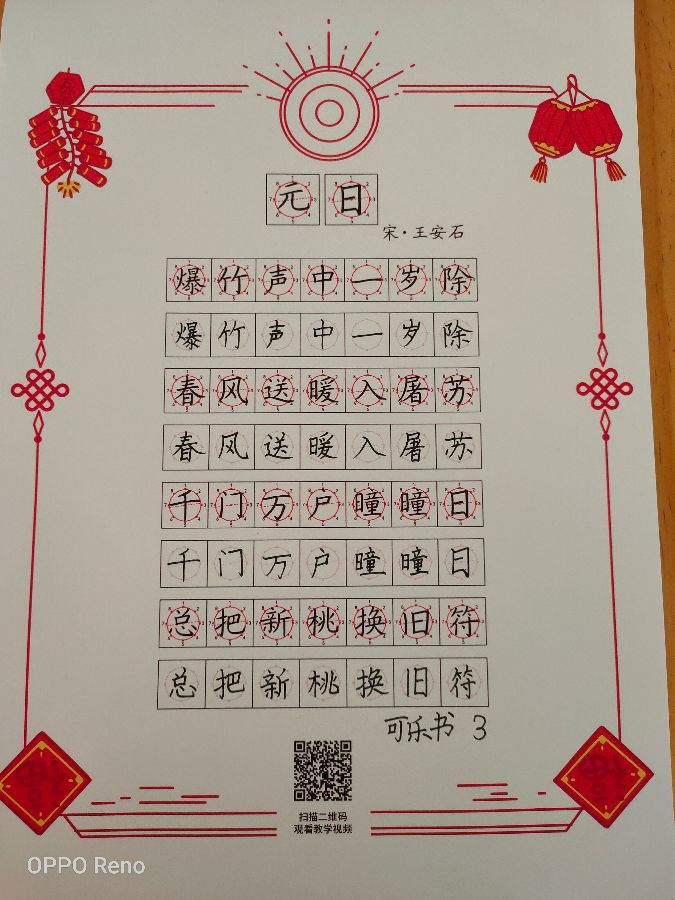 元日
宋·王安石
爆竹声中一岁除
爆竹声中一岁除
春风送暖入屠苏
春风送暖入屠苏
千门万户曈曈日
千门万户曈曈日
总把新桃换旧符
总把新桃换旧符
可乐书 3
扫描二维码
观看教学视频
OPPO Reno